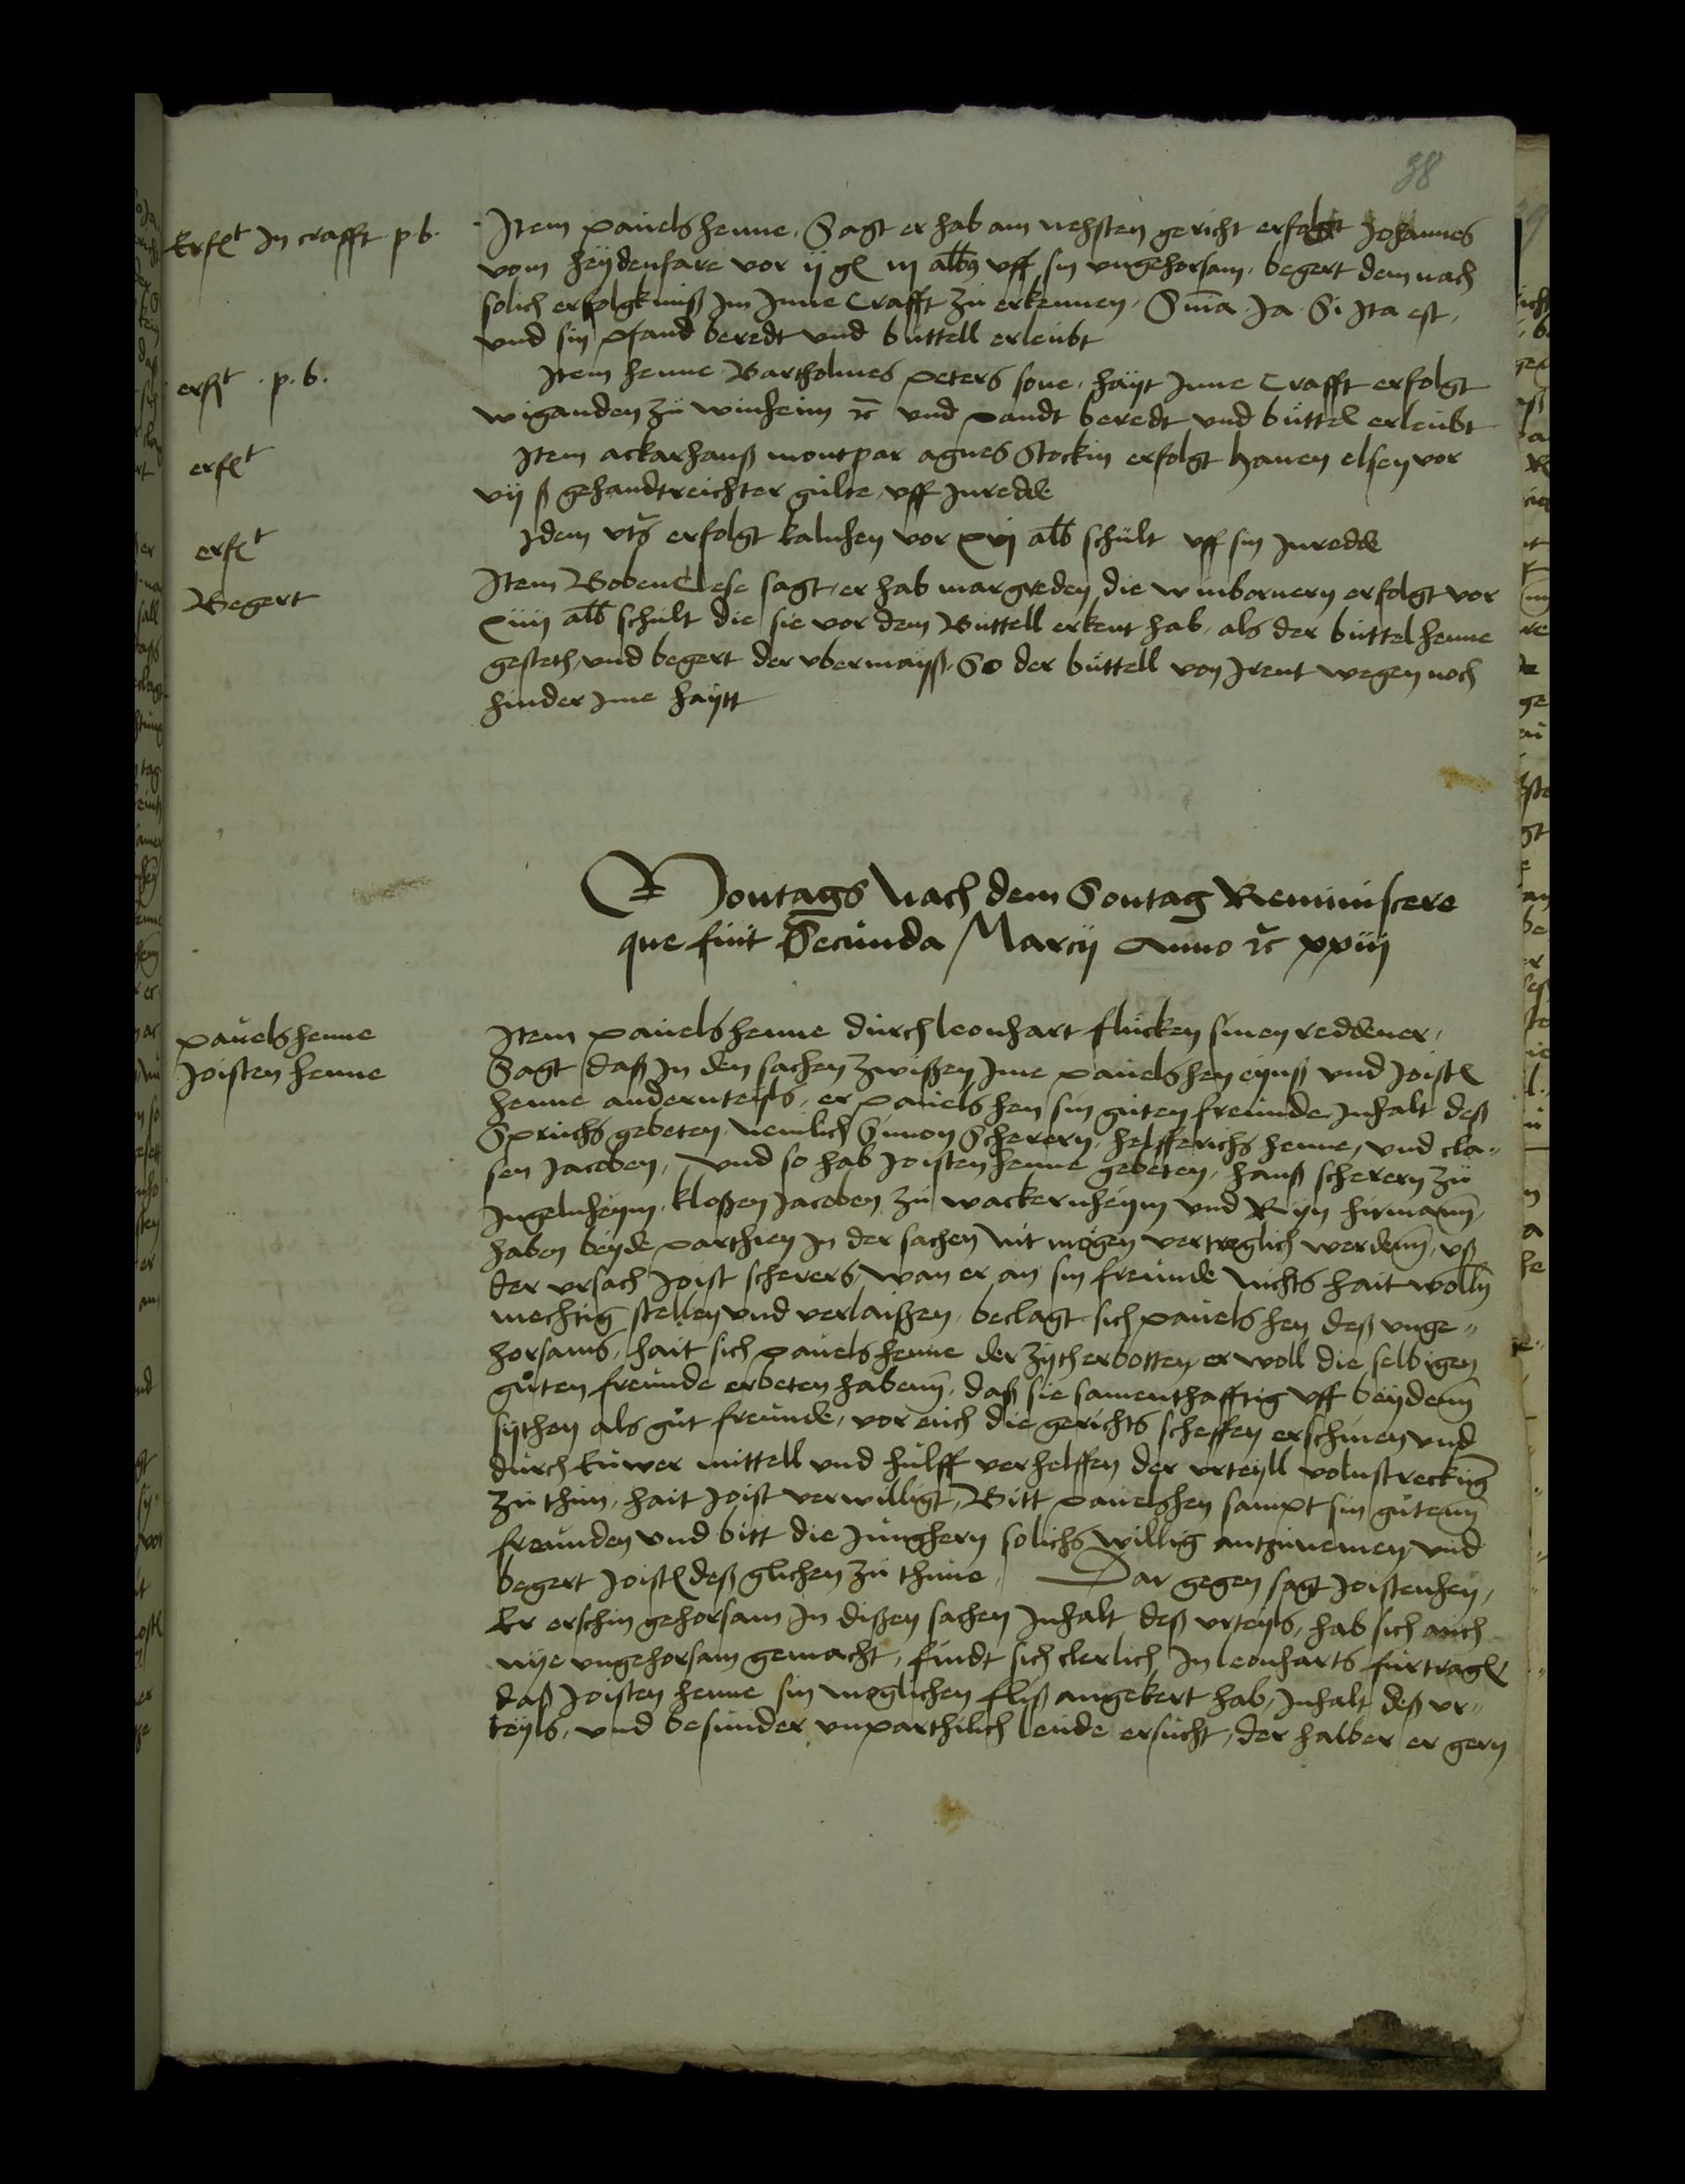 38
Erf&lt;t In crafft p b.
Item pauels henne. Sagt er hab am nehsten gericht erfolgt Johannes
vom heydenfare vor ij gl iij albus vff sin vngehorsam. begert dem nach
solich erfolgkniß im Inne Crafft zu erkennen. Snia Ja Si Ita est,
vnd sin pfand beredt vnd buttell erleubt
erft . p. b.
Item henne Bartholmes peters sone. hayt Inne Crafft erfolgt
wiganden zu winheim ꝛc vnd pandt beredt vnd büttel erleubt
erft
Item ackarhanß montpar agnes Stockin erfolgt Hanen elsen vor
vij ß gehandtreichter gulte, vff Inredde
erft
Idem vts erfolgt kalnhen vor xvj alb schült vff sin Inredde
Begert
Item Boben Clese sagt er hab margreden die winbornern erfolgt vor
xiiij alb schult die sie vor dem Buttell erkent hab, als der buttel henne
gesteth, vnd begert der vbermayß. So der büttell von Irent wegen noch
hinder Ime haytt
Montags Nach dem Sontag Reminiscere
que fuit Secunda Marcij Anno ꝛc xxiij
pauels henne
Joisten henne
Item pauels henne durch leonhart flucken sinen reddener,
Sagt daß In den sachen zwißen Ime pauelshen eynß vnd Joist
henne andernteyls, er pauels hen sin guten freunde Inhalt deß
Spruchs gebeten. nemlich Simon Scherern, helfferichs henne, vnd cla"
sen Jacoben, Vnd so hab Joisten henne gebeten, hanß scherern zü
Ingelnheym. kloßen Jacoben zu wackernheym vnd Ryn hirmann,
haben beyde parthien In der sachen nit mögen vertreglich werdenn, vß
der vrsach Joist scherers, wan er an sin freunde nichts hait wolln
mechtig stellen vnd verlaißen, beclagt sich pauels hen deß vnge"
horsams, hait sich pauels henne der zijt erbotten, er woll die selbigen
guten freunde erbeten habenn, daß sie samenthafftig vff beydenn
sythen als gut freunde, vor euch die gerichts scheffen erschinen vnd
durch Euwer mittell vnd hulff verhelffen der vrteyll volnstreckung
zu thun, hait Joist verwilligt, Bitt pauelshen sampt sin gutenn
freunden vnd bitt die Junghern solichs willig antzunemen, vnd
begert Joist deß glichen zu thune. Dar gegen sagt Joistenhen,
Er erschin gehorsam In dißen sachen Inhalt deß vrteyls, hab sich auch
nye vngehorsam gemacht, findt sich clerlich In leonharts furtragk
daß Joisten henne sin moglichen fliß angekert hab, Inhalt deß vr"
teyls, vnd besunder vnparthilich leude ersucht, der halber er gern